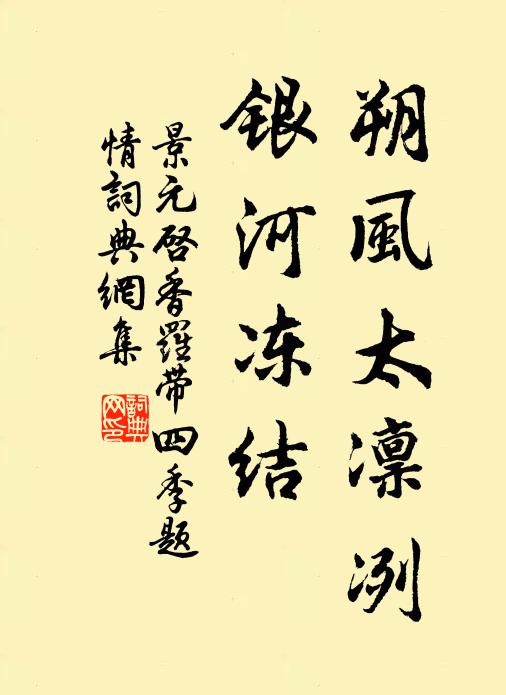 朔風太凛冽
銀河冻结
景元啓香羅带四季題
情詞典網集
詞典网印